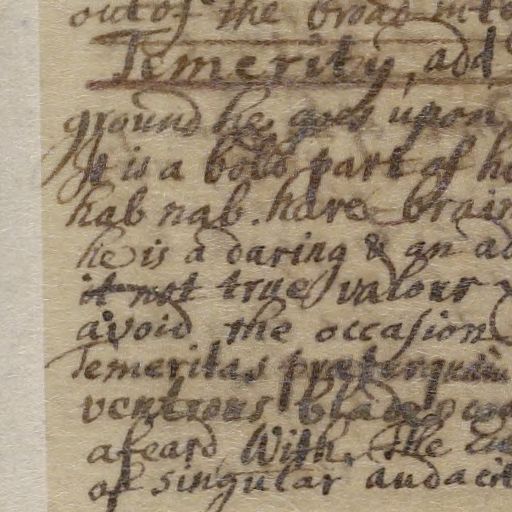 out of the broad into
Temerity, add
ground he goes upon,
It is a bold part of
hab nab. hare brain
he is a daring & an ad
it not true valour
avoid the occasion
Temeritas præterquam
ventrous blades
afeard With the
of singular audacit